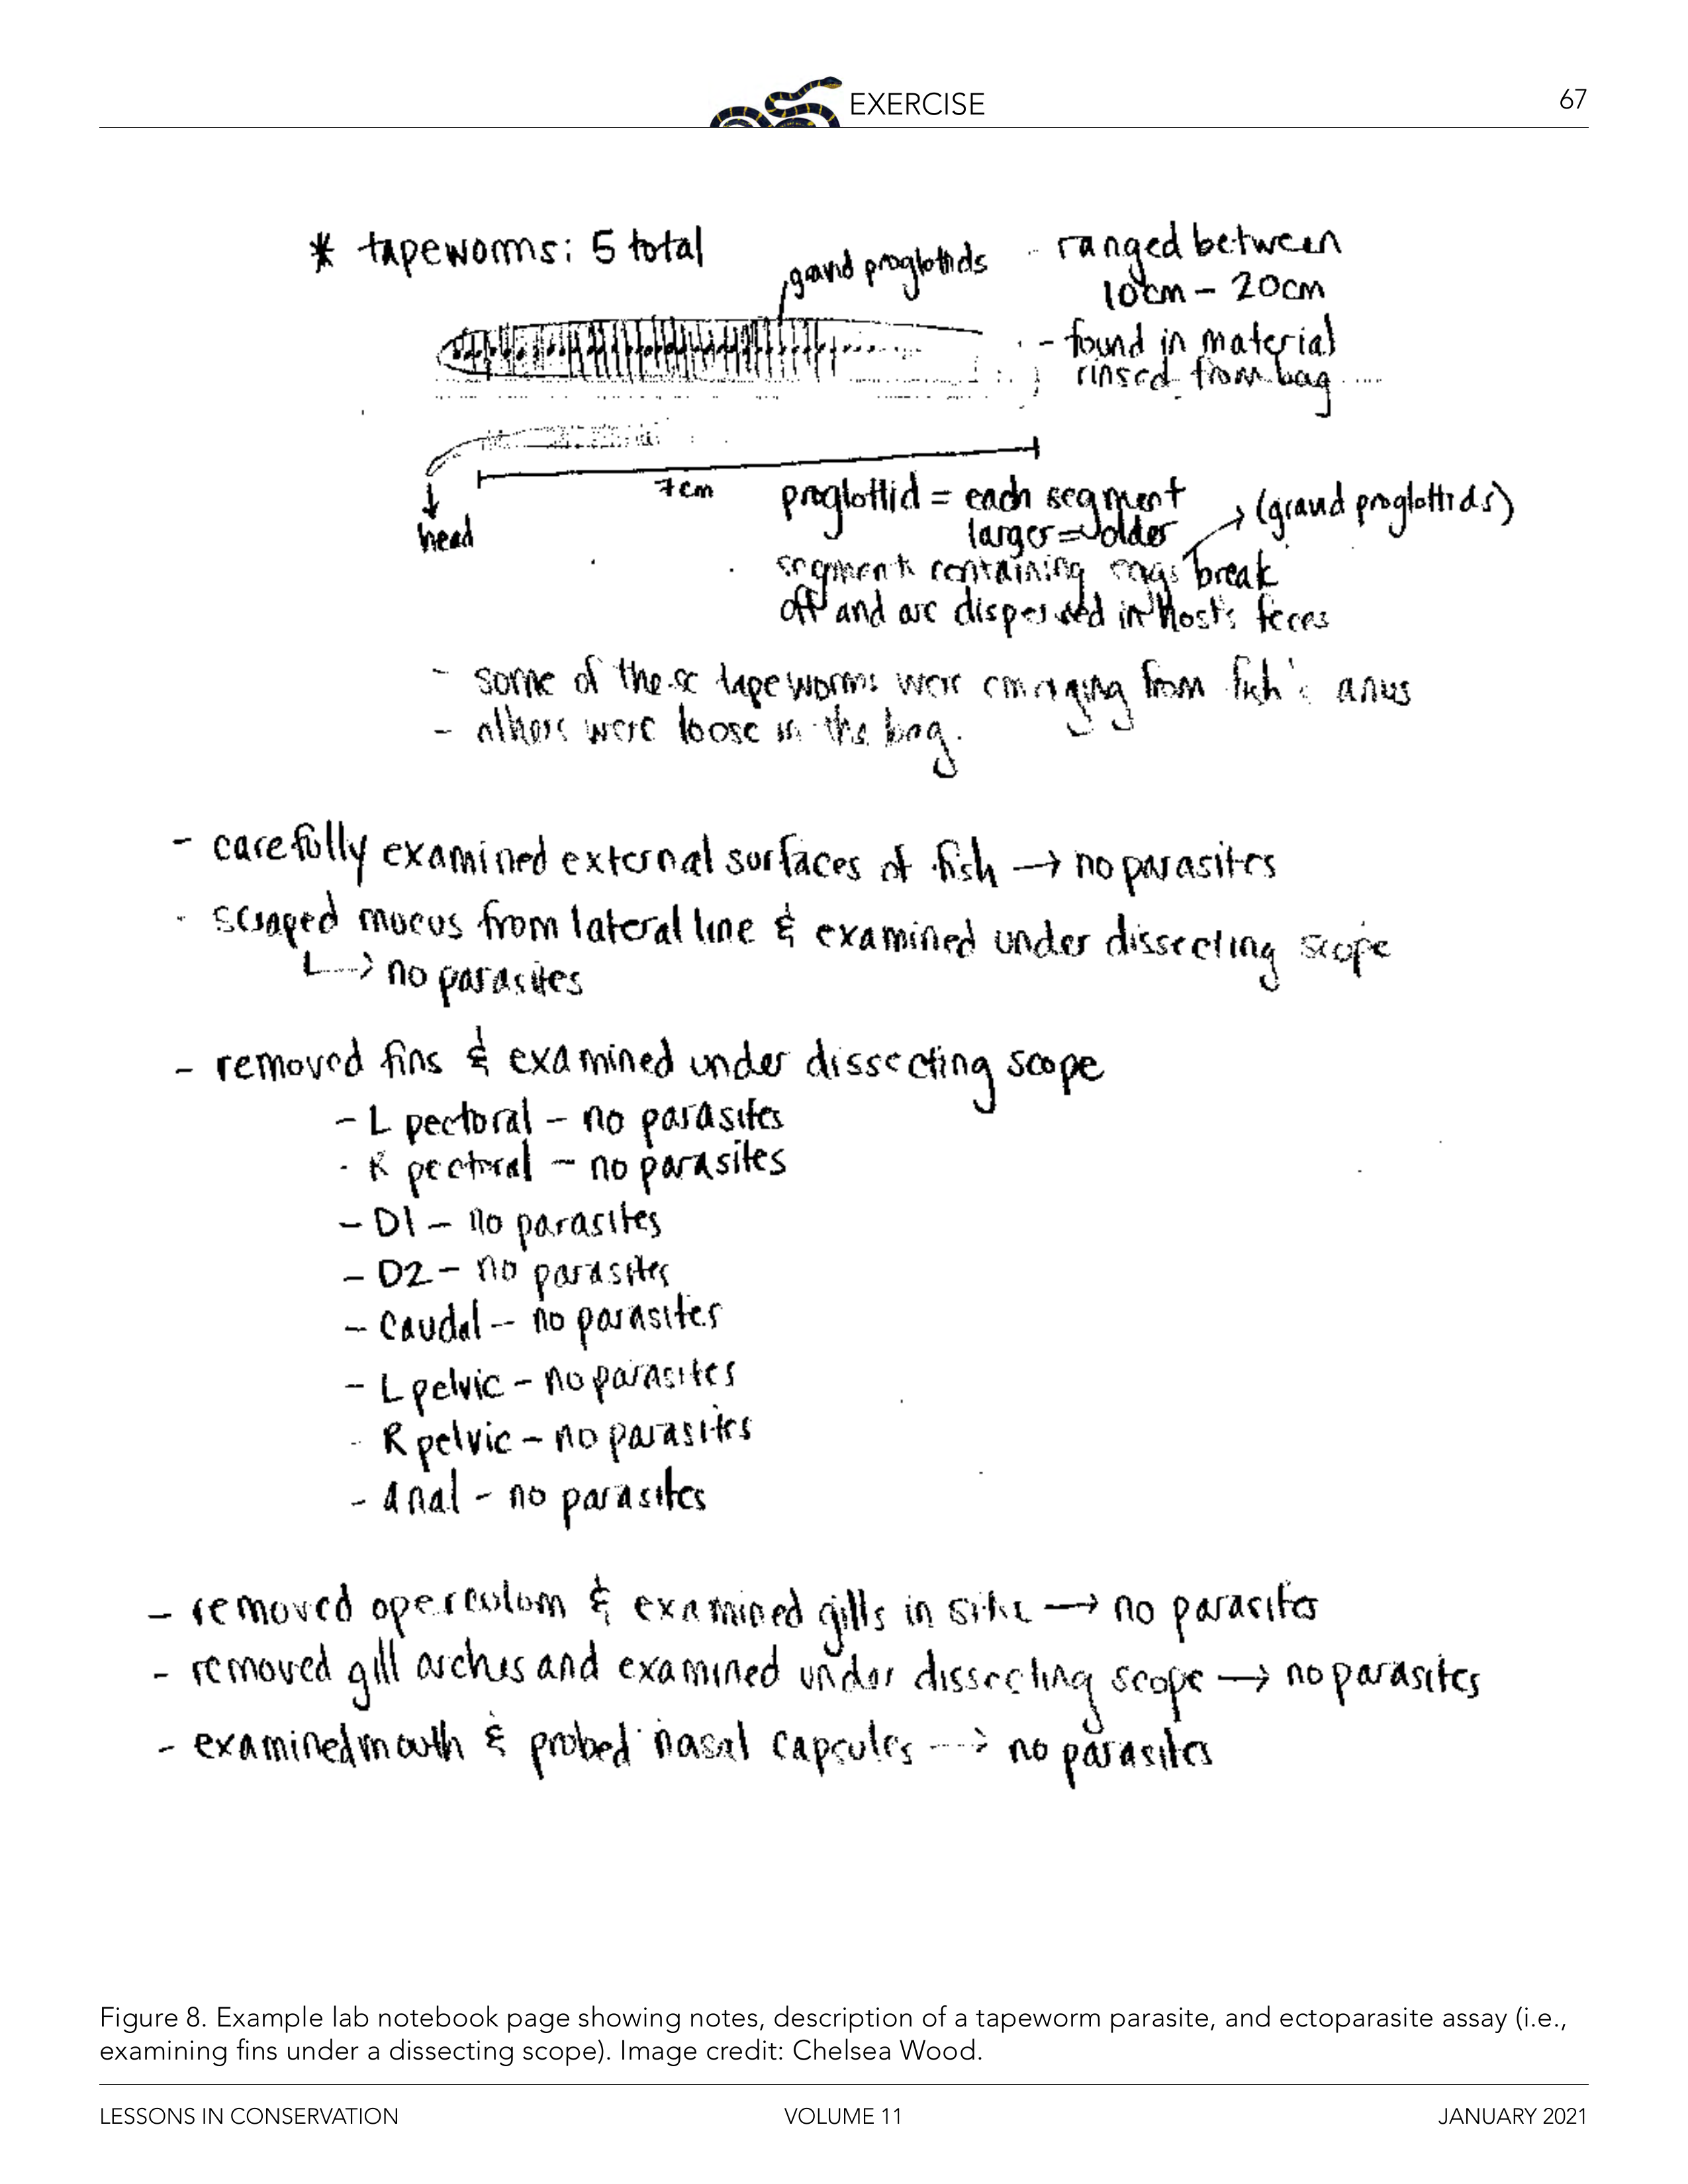 EXERCISE
67
* tapeworms: 5 total
gravid proglottids
- ranged between
10cm - 20cm
- found in material
rinsed from bag
7cm
head
proglottid = each segment
larger = older
(gravid proglottids)
segments containing eggs break
off and are dispersed in host's feces
- some of these tapeworms were emerging from fish's anus
- others were loose in the bag.
- carefully examined external surfaces of fish → no parasites
- scraped mucus from lateral line & examined under dissecting scope
→ no parasites
- removed fins & examined under dissecting scope
- L pectoral - no parasites
- R pectoral - no parasites
- D1 - no parasites
- D2 - no parasites
- Caudal - no parasites
- L pelvic - no parasites
- R pelvic - no parasites
- anal - no parasites
- removed operculum & examined gills in situ → no parasites
- removed gill arches and examined under dissecting scope → no parasites
- examined mouth & probed nasal capsules → no parasites
Figure 8. Example lab notebook page showing notes, description of a tapeworm parasite, and ectoparasite assay (i.e.,
examining fins under a dissecting scope). Image credit: Chelsea Wood.
LESSONS IN CONSERVATION
VOLUME 11
JANUARY 2021